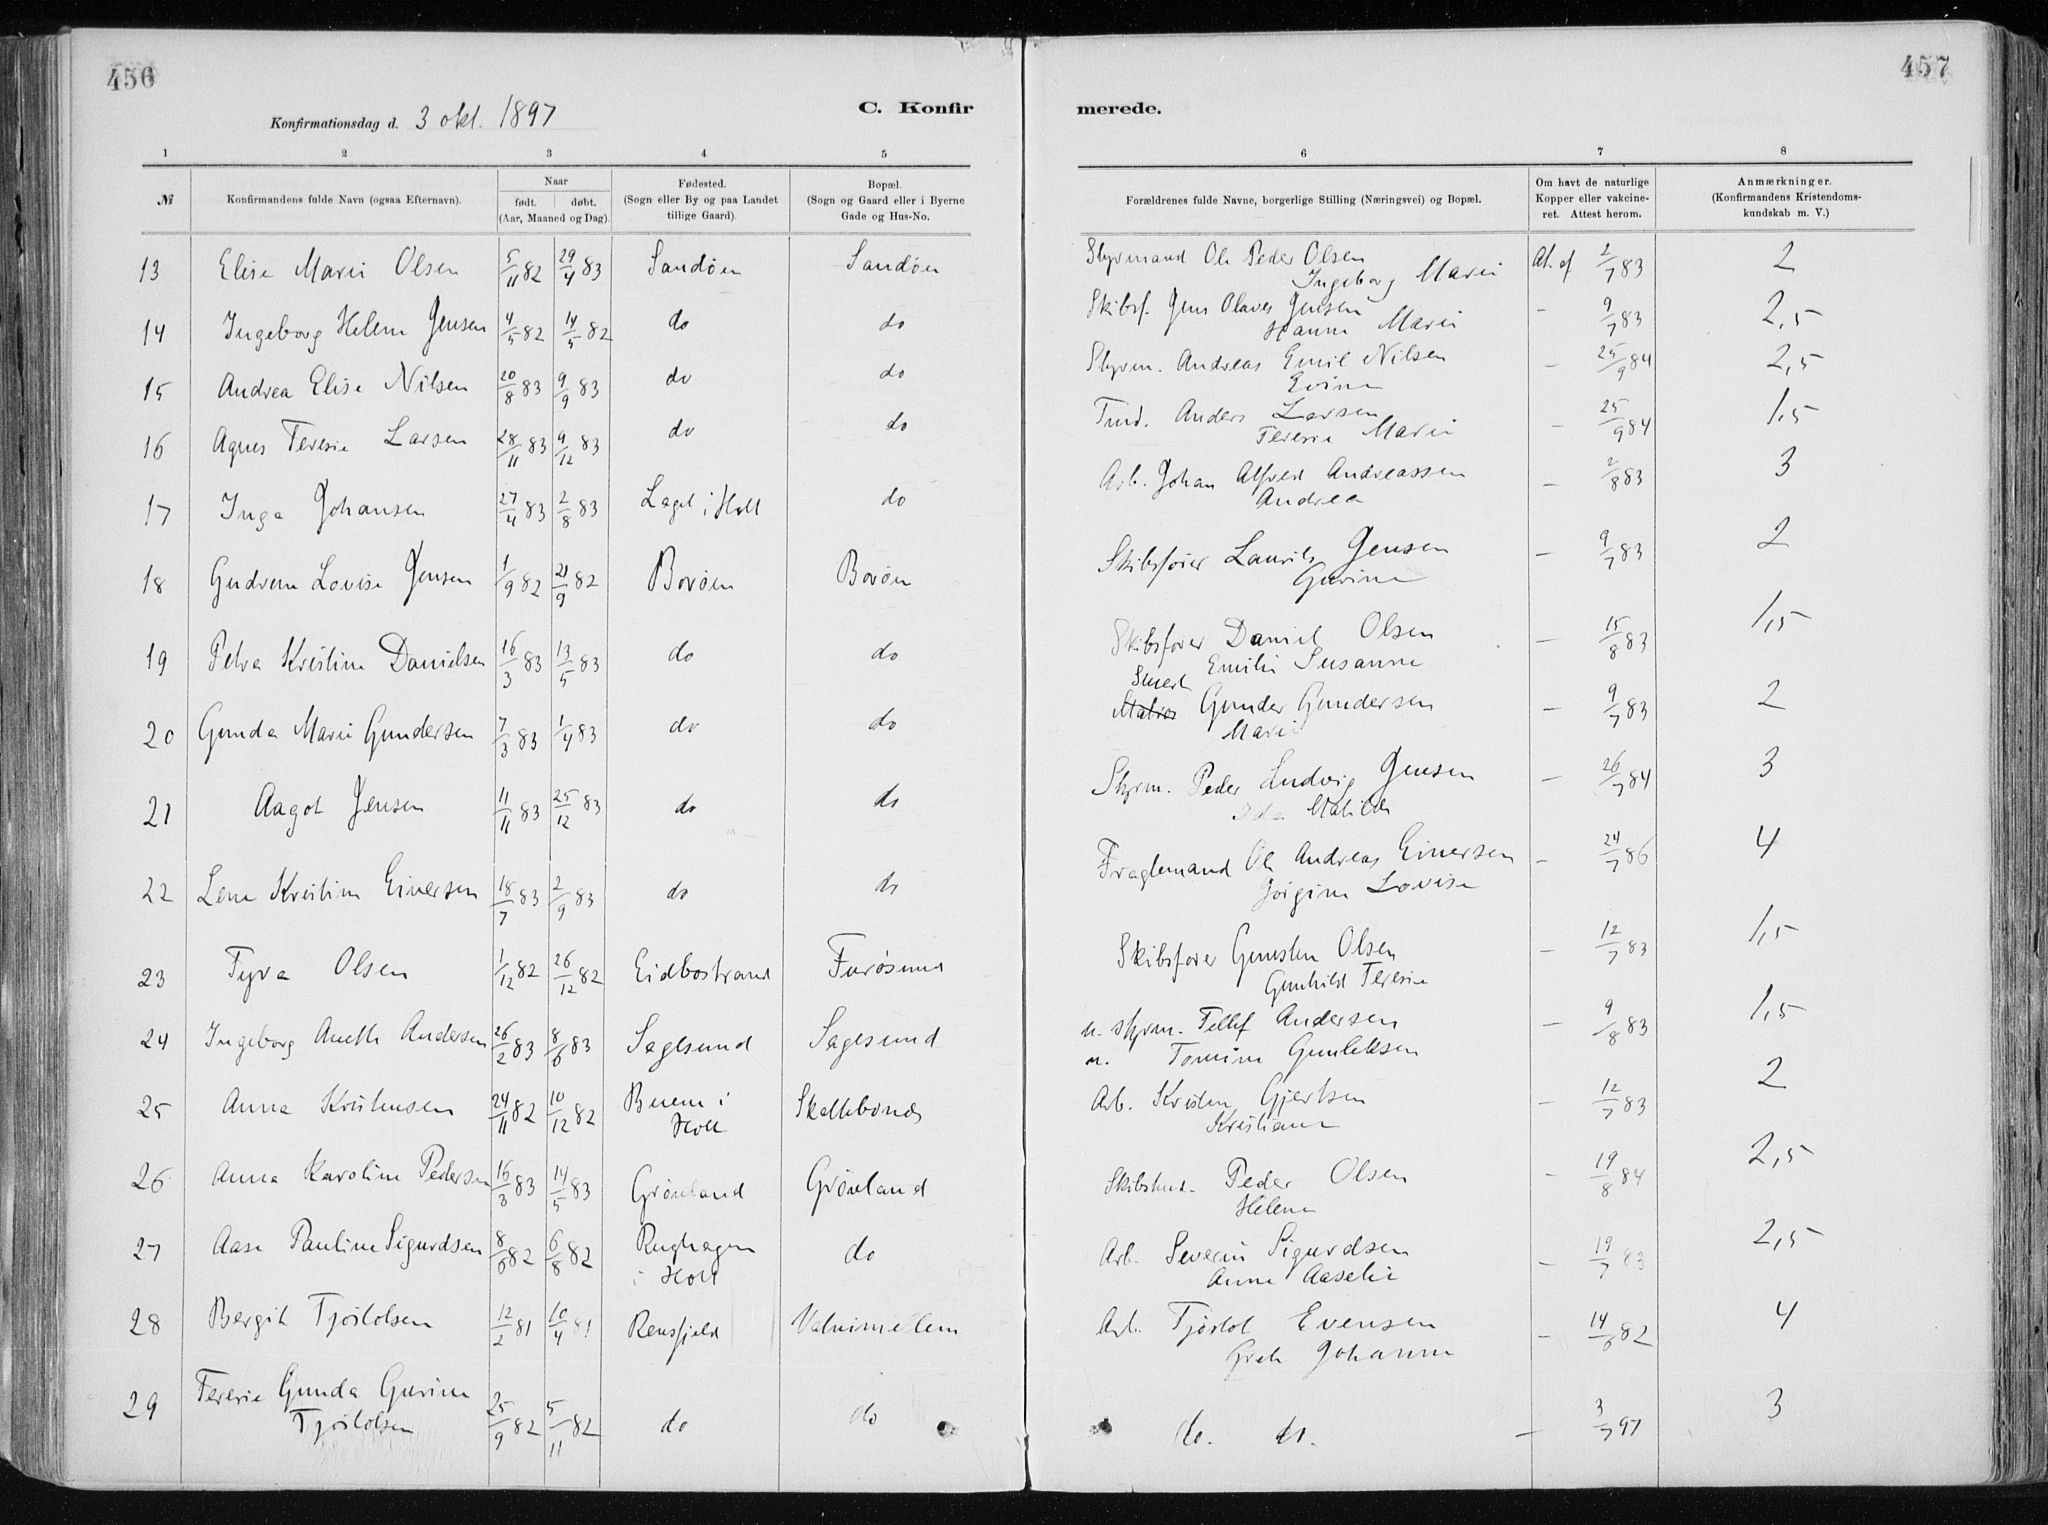 456
457
Konfirmationsdag d. 3 okt. 1897
C. Konfir
merede.
1 2 3 4 5 6 7 8
№ Konfirmandens fulde Navn (ogsaa Efternavn). Naar født. døbt. (Aar, Maaned og Dag). Fødested. (Sogn eller By og paa Landet tillige Gaard). Bopæl. (Sogn og Gaard eller i Byerne Gade og Hus-No. Forældrenes fulde Navne, borgerlige Stilling (Næringsvei) og Bopæl. Om havt de naturlige Kopper eller vakcineret. Attest herom. Anmærkninger. (Konfirmandens Kristendomskundskab m. V.)
13 Elise Marie Olsen 5/11 82 29/4 83 Sandøen Sandøen Styrmand Ole Peder Olsen At. af 2/7 83 2
Ingeborg Marie
14 Ingeborg Helene Jensen 4/5 82 14/5 82 do do Skibsf. Jens Olaves Jensen - 9/7 83 2,5
Hanne Marie
15 Andrea Elise Nilsen 20/8 83 9/9 83 do do Styrm. Andreas Emil Nilsen - 25/9 84 2,5
Evine
16 Agnes Teresie Larsen 28/11 83 9/12 83 do do Anders Larsen - 25/9 84 1,5
Teresie Marie
17 Inga Johansen 27/4 83 2/8 83 Laget i Holt do Arb. Johan Alfred Andreassen - 2/8 83 3
Andrea
18 Gudrun Lovise Jensen 1/9 82 21/9 82 Borøen Borøen Skibsfører Laurits Jensen - 9/7 83 2
Gurine
19 Petra Kristine Danielsen 16/3 83 13/5 83 do do Skibsfører Daniel Olsen - 15/8 83 1,5
Emilie Susanne
20 Gunda Marie Gundersen 7/3 83 1/4 83 do do Matros Gunder Gundersen - 9/7 83 2
Marie
21 Aagot Jensen 11/11 83 25/12 83 do do Styrm. Peder Ludvig Jensen - 26/7 84 3
Ida Matilde
22 Lene Kristine Einersen 18/7 83 2/9 83 do do Fragtemand Ole Andreas Einersen - 24/7 86 4
Jørgine Lovise
23 Tyra Olsen 1/12 82 26/12 82 Eidbostrand Furøsund Skibsfører Gunsten Olsen - 12/7 83 1,5
Gunhild Teresie
24 Ingeborg Anette Andersen 26/2 83 8/6 83 Sagesund Sagesund u. styrm. Tellef Andersen - 9/8 83 1,5
u. Tomine Gunleksen
25 Anna Kristensen 24/11 82 10/12 82 Buene i Holt Skattebonde Arb. Kristen Gjertsen - 12/7 83 2
Kristiane
26 Anna Karoline Pedersen 16/3 83 14/5 83 Grønland Grønland Peder Olsen - 19/8 84 2,5
Helene
27 Aase Pauline Sigurdsen 8/6 82 6/8 82 Rughagen i Holt do Arb. Severin Sigurdsen - 19/7 83 2,5
Anne Aaselie
28 Bergit Tjøstolsen 12/2 81 10/4 81 Rensfjeld Arb. Tjøstol Evensen - 14/6 82 4
Grete Johanne
29 Teresie Gunda Gurine 25/9 82 5/11 82 do do do. do. - 3/7 97 3
Tjøstolsen